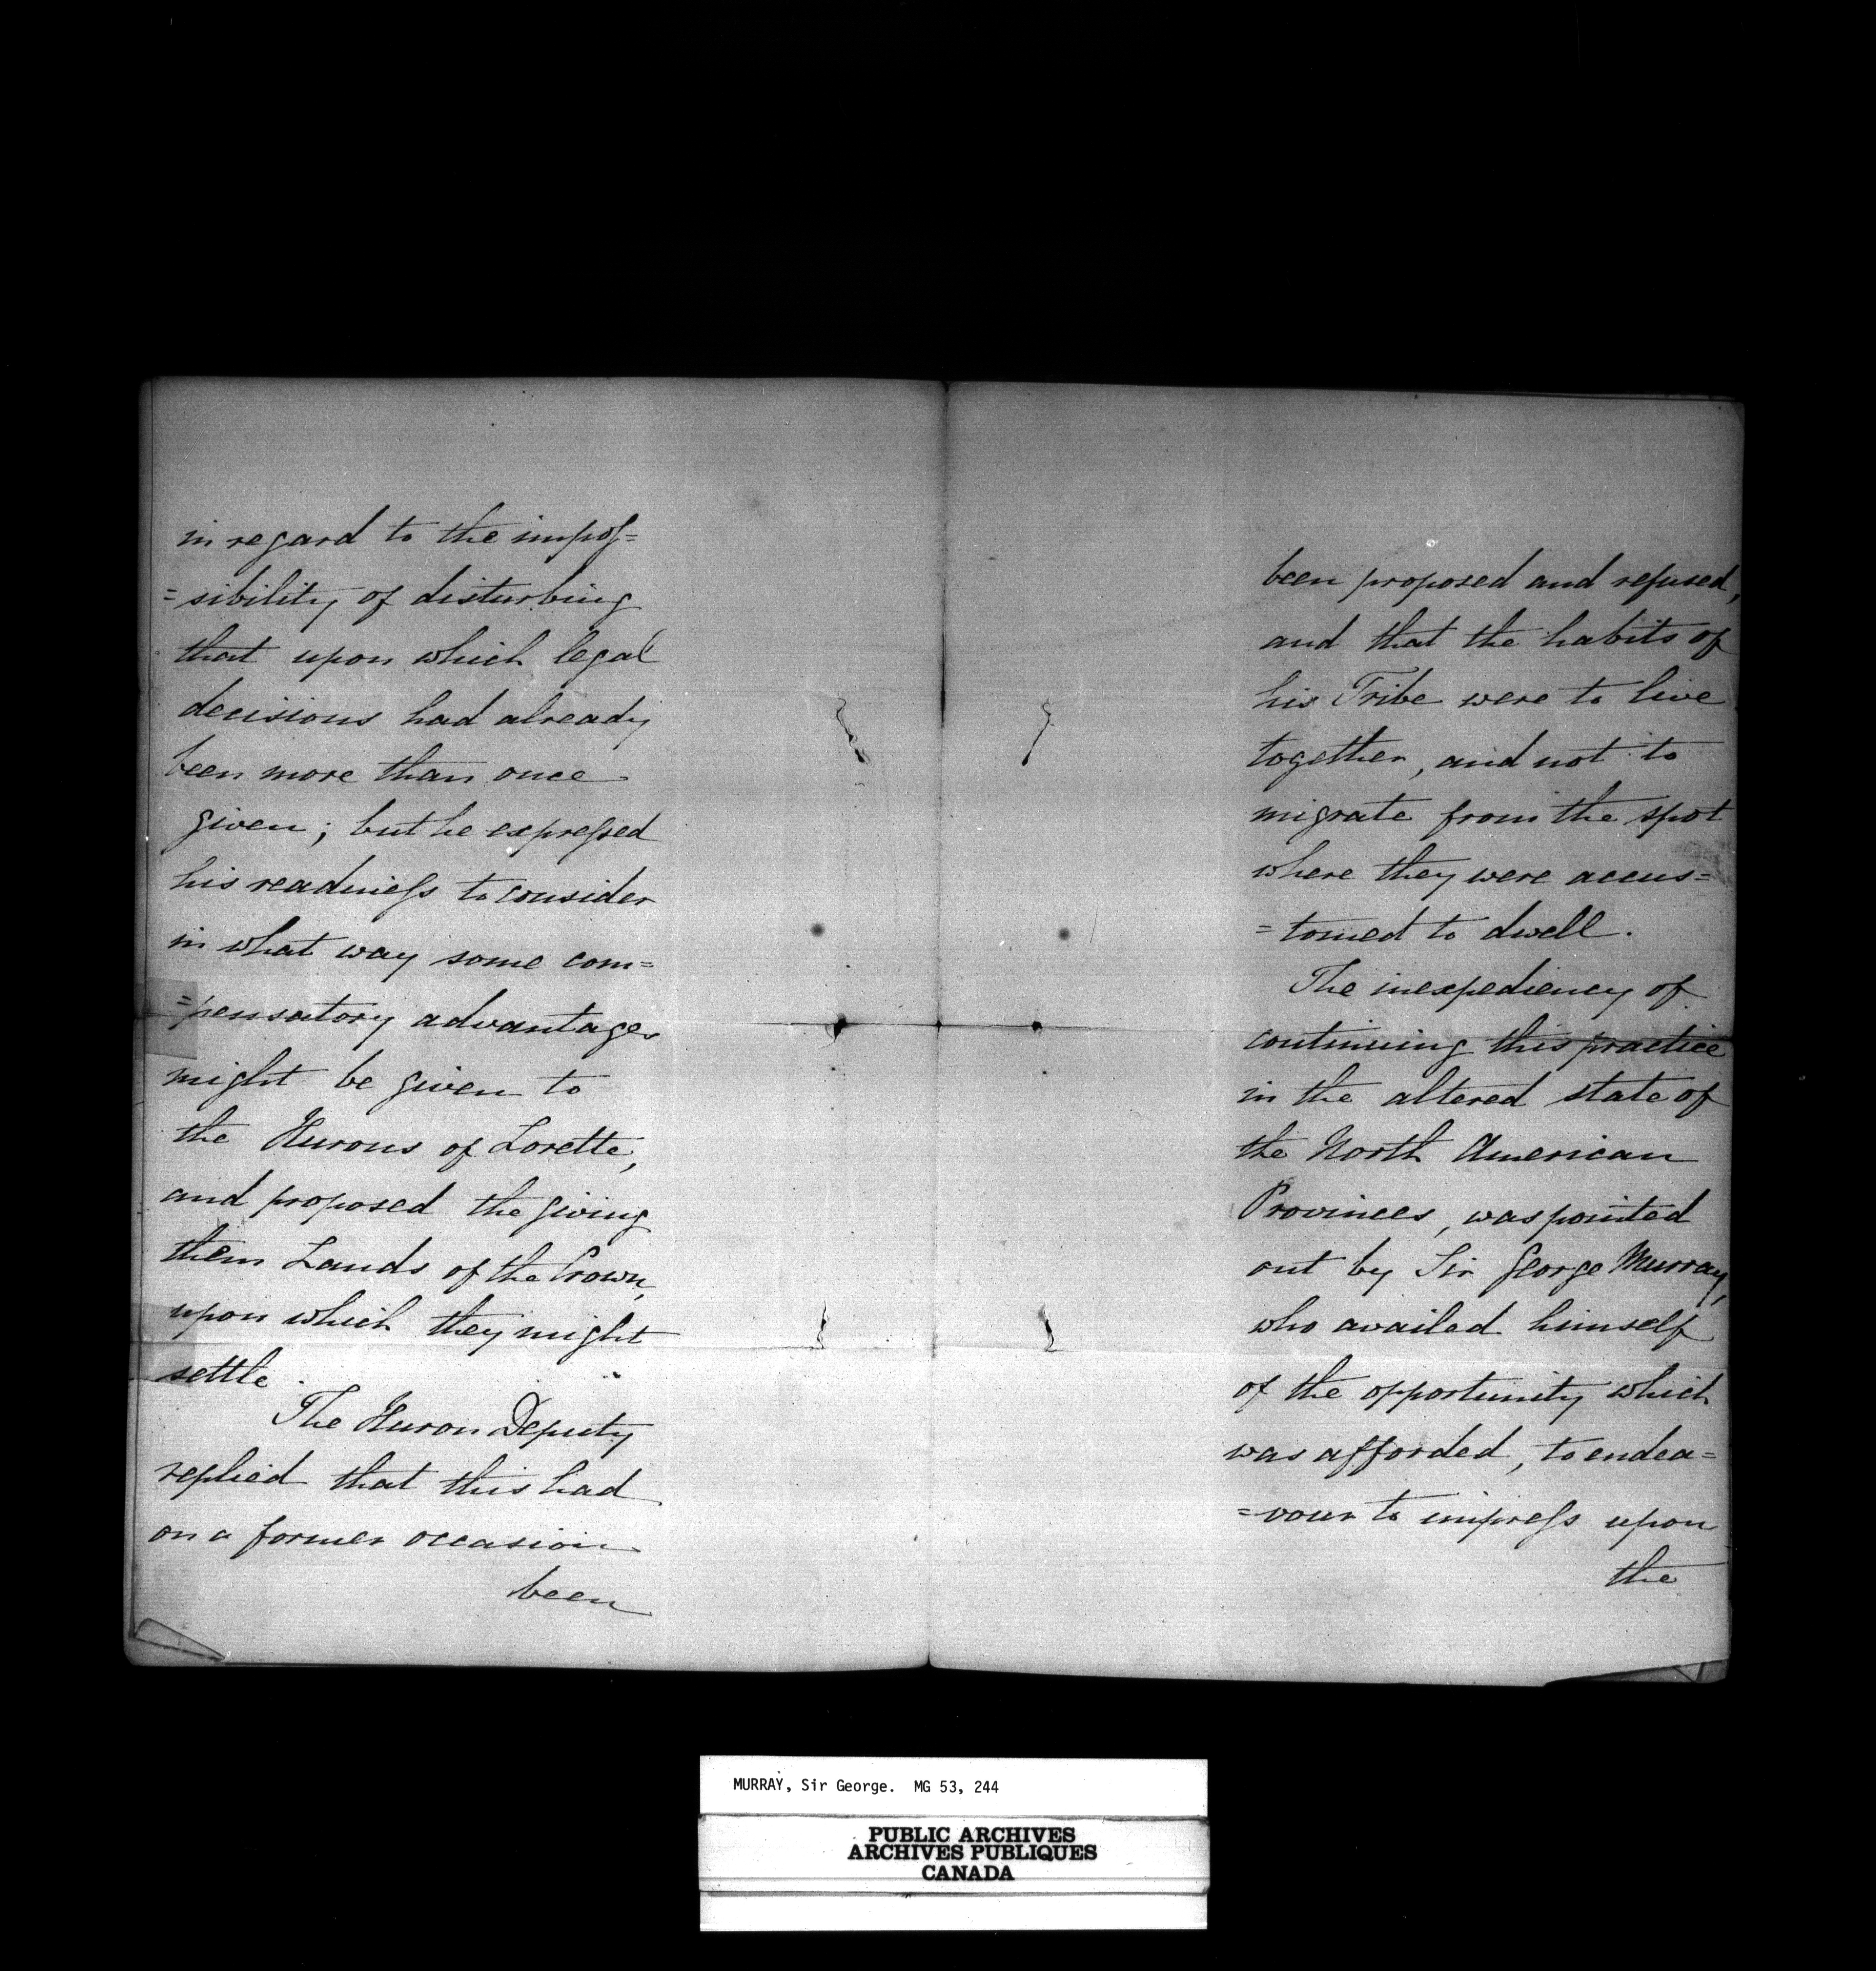 in regard to the impos=
=sibility of disturbing
that upon which legal
decisions had already
been more than once
given; but he expressed
his readiness to consider
in what way some com=
=pensatory advantages
might be given to
the Hurons of Lorette,
and proposed the giving
them Lands of the Crown,
upon which they might
settle.
The Huron Deputy
replied that this had
on a former occasion
been
been proposed and refused,
and that the habits of
his Tribe were to live
together, and not to
migrate from the spot
where they were accus=
=tomed to dwell.
The inexpediency of
continuing this practice
in the altered state of
the North American
Provinces, was pointed
out by Sir George Murray,
who availed himself
of the opportunity which
was afforded, to endea=
=vour to impress upon
the
MURRAY, Sir George. MG 53, 244
PUBLIC ARCHIVES
ARCHIVES PUBLIQUES
CANADA